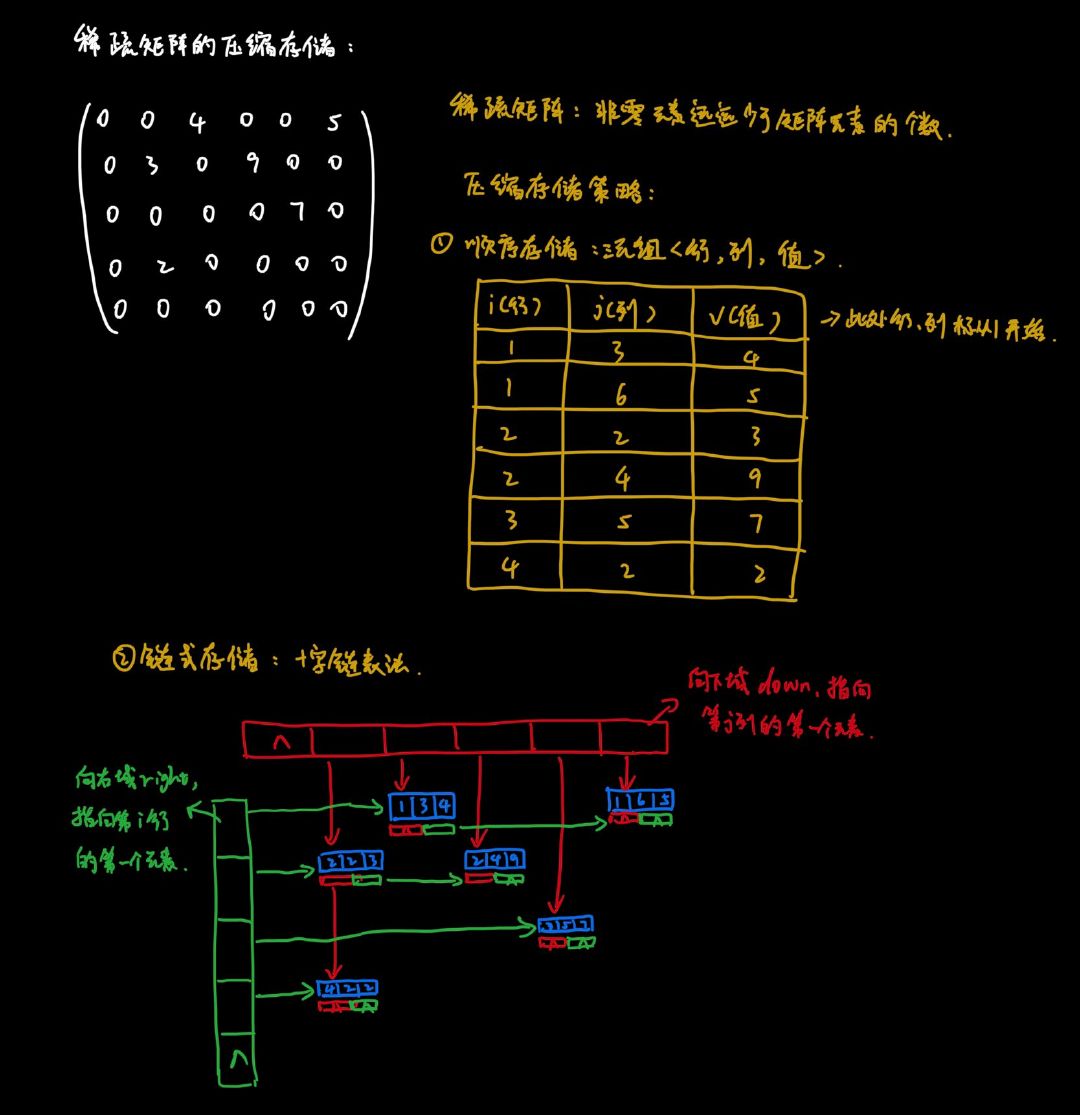 稀疏矩阵的压缩存储：
0 0 4 0 0 5
0 3 0 9 0 0
0 0 0 0 7 0
0 2 0 0 0 0
0 0 0 0 0 0
稀疏矩阵：非零元素远远少于矩阵元素的个数.
压缩存储策略：
① 顺序存储：三元组<行,列,值>.
i(行) j(列) v(值)
→此处行、列标从1开始.
1 3 4
1 6 5
2 2 3
2 4 9
3 5 7
4 2 2
②链式存储：十字链表法.
向下域down,指向
第j列的第一个元素.
^
向右域right,
指向第i行
的第一个元素.
1 3 4
1 6 5
^ ^
2 2 3
2 4 9
^
3 5 7
^ ^
4 2 2
^ ^
^